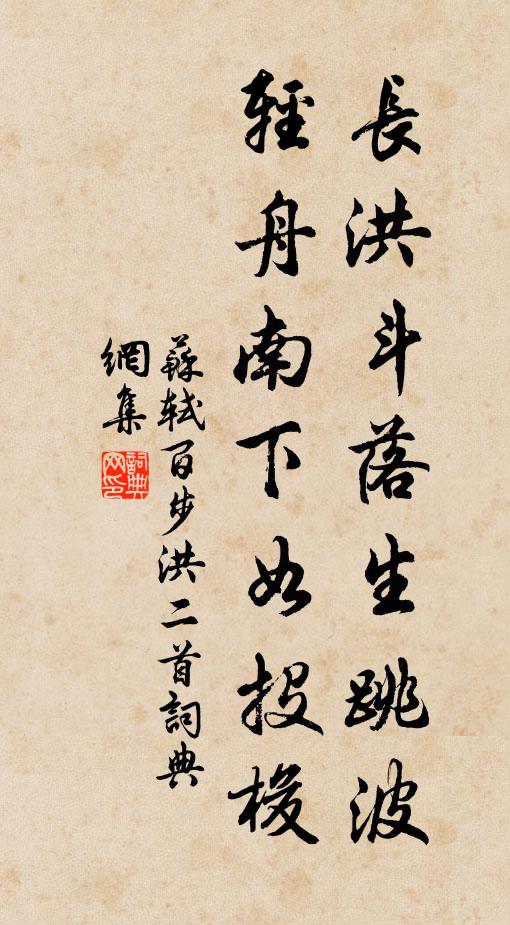 長洪斗落生跳波
輕舟南下如投梭
蘇軾百步洪二首詞典
網集
詞典網印